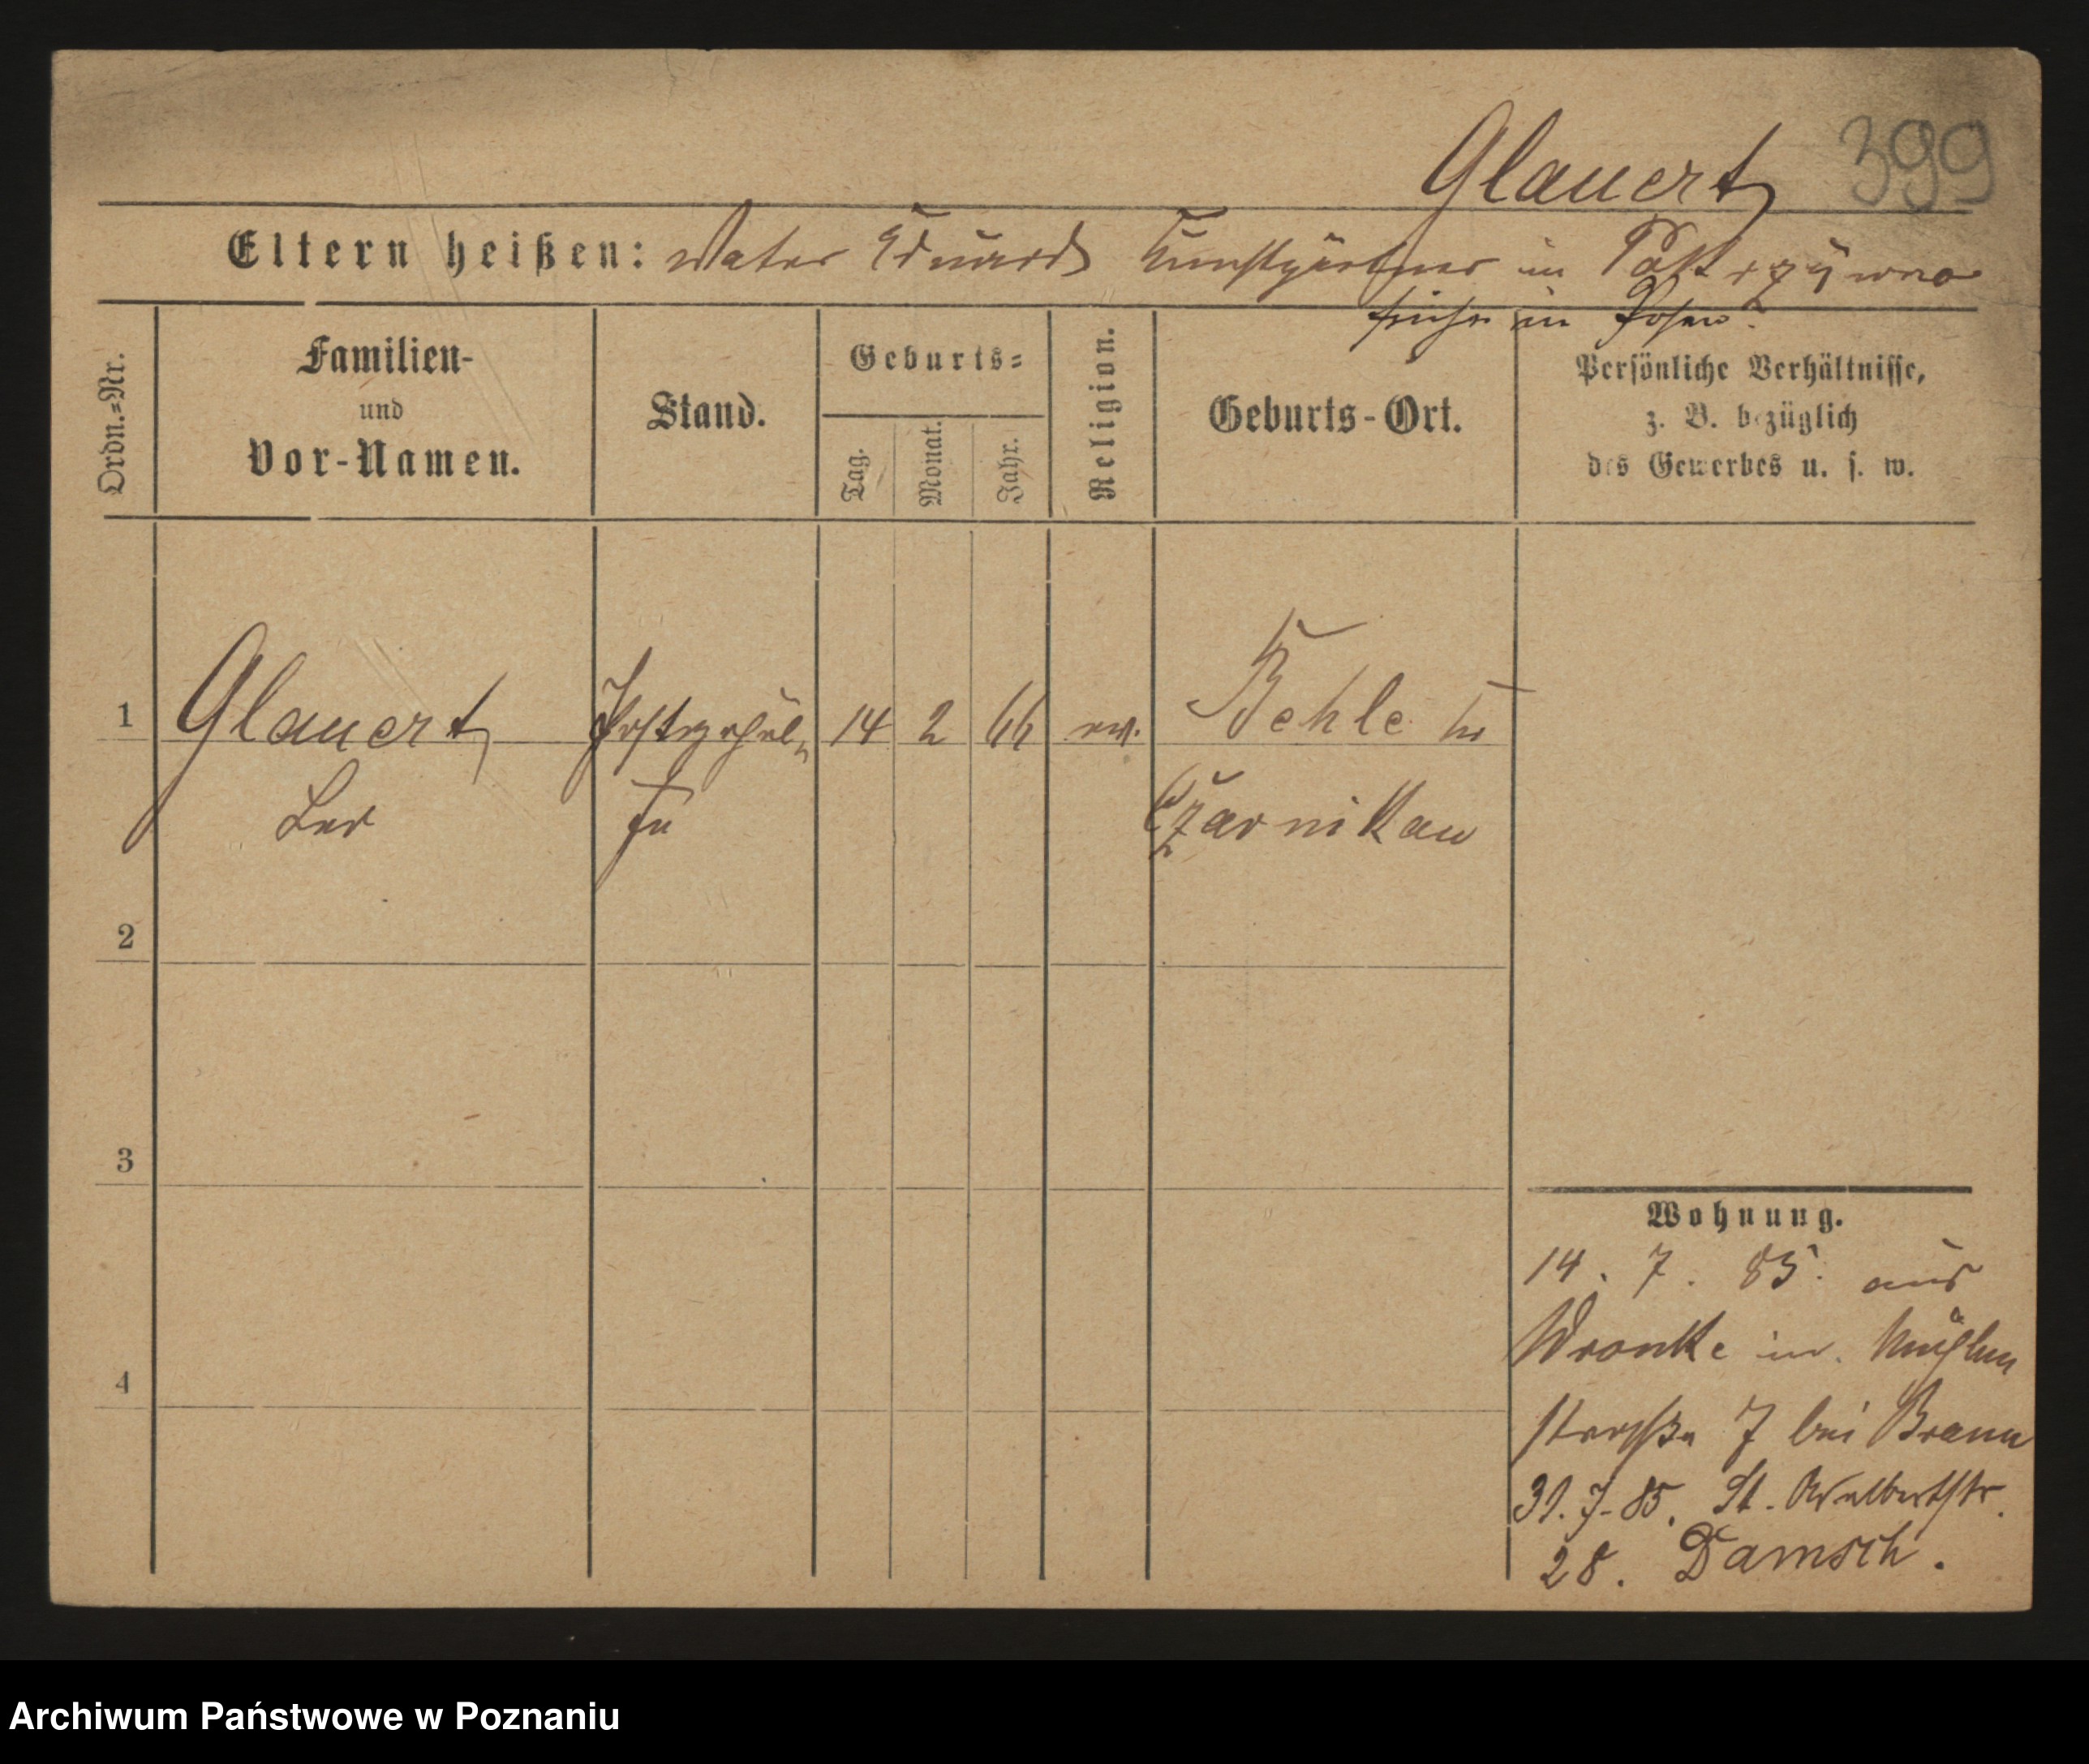 Glauert 399
Eltern heißen: Vater Eduard Kunstgärtner in Pokrzywno
früher in Posen
Ordn.=Nr.
Familien-
und
Vor-Namen.
Stand.
Geburts=
Tag.
Monat.
Jahr.
Religion.
Geburts-Ort.
Persönliche Verhältnisse,
z. B. bezüglich
des Gewerbes u. s. w.
1 Glauert Postgehül- 14 2 66 ev. Behle Kr
Leo fe Czarnikau
2
3
4
Wohnung.
14. 7. 85. aus
Wronke in. Mühlen
straße 7 bei Braun
31. 7. 85. St. Adalbertstr.
28. Damsch.
Archiwum Państwowe w Poznaniu